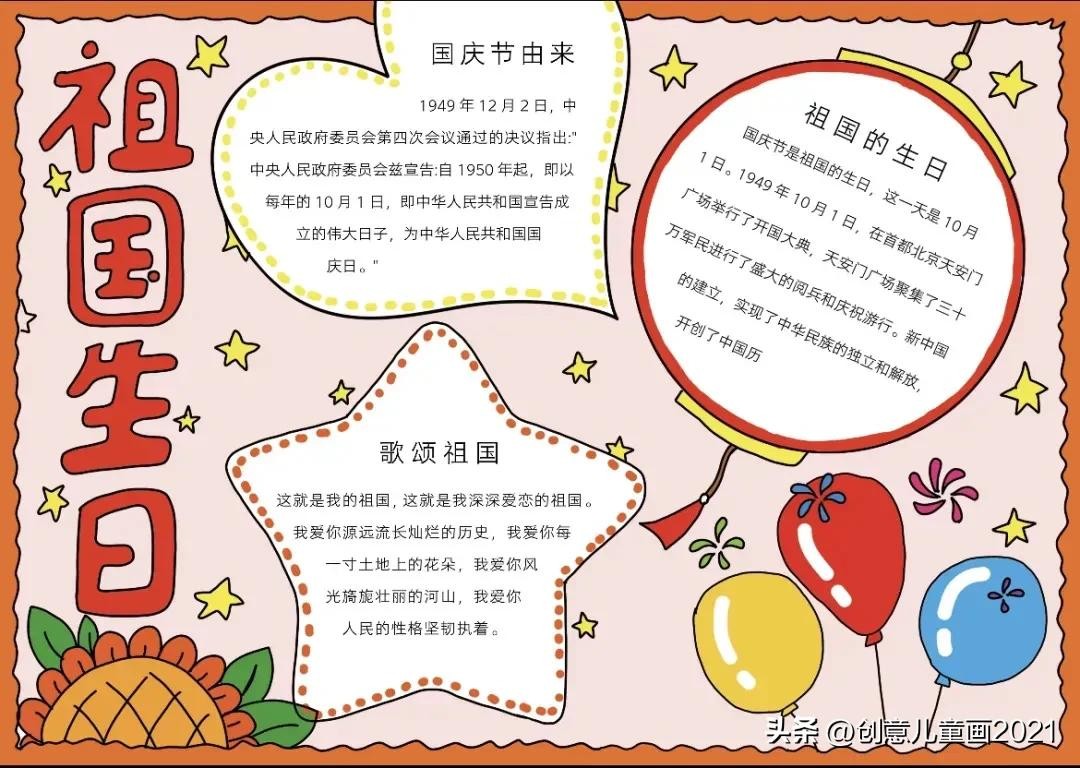 祖国生日
国庆节由来
1949 年 12 月 2 日，中
央人民政府委员会第四次会议通过的决议指出:"
中央人民政府委员会兹宣告:自 1950 年起，即以
每年的 10 月 1 日，即中华人民共和国宣告成
立的伟大日子，为中华人民共和国国
庆日。"
祖国的生日
国庆节是祖国的生日，这一天是 10 月
1 日。1949 年 10 月 1 日，在首都北京天安门
广场举行了开国大典，天安门广场聚集了三十
万军民进行了盛大的阅兵和庆祝游行。新中国
的建立，实现了中华民族的独立和解放，
开创了中国历
歌颂祖国
这就是我的祖国，这就是我深深爱恋的祖国。
我爱你源远流长灿烂的历史，我爱你每
一寸土地上的花朵，我爱你风
光旖旎壮丽的河山，我爱你
人民的性格坚韧执着。
头条 @创意儿童画2021